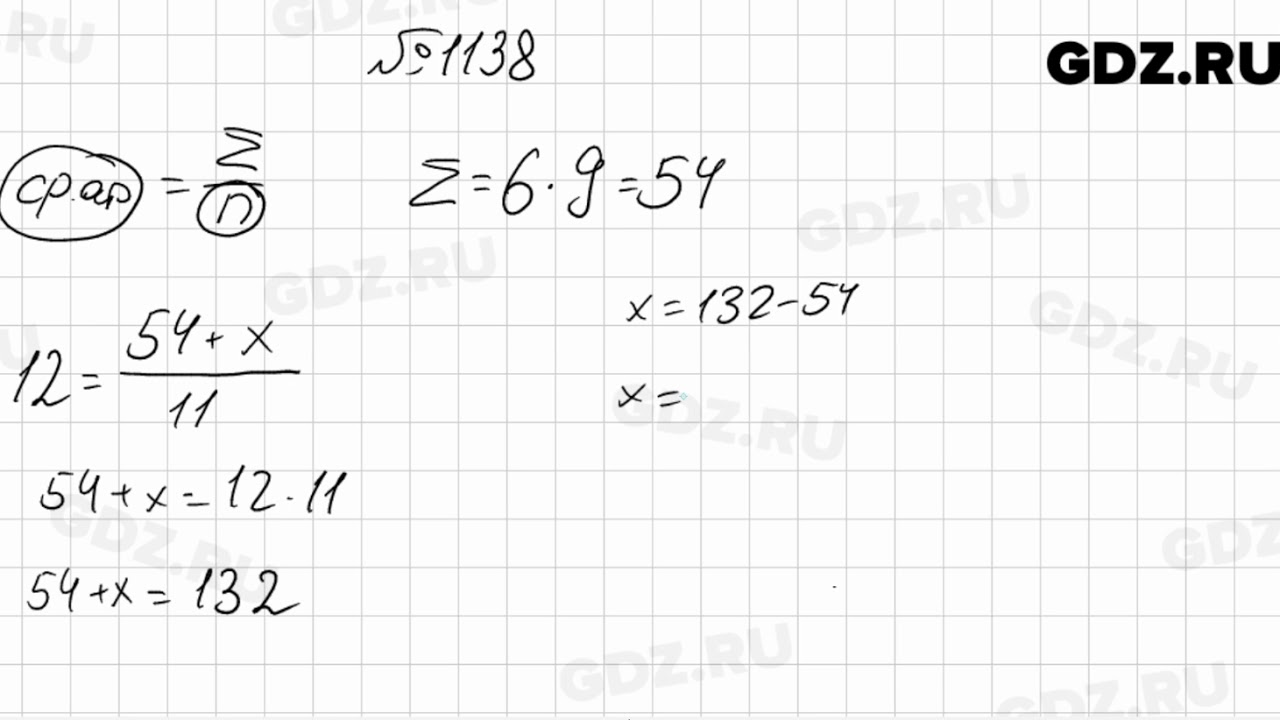 №1138
GDZ.RU
ср.ар = Σ/n
Σ = 6 · 9 = 54
12 = (54 + x)/11
x = 132 - 54
x =
54 + x = 12 · 11
54 + x = 132
GDZ.RU
GDZ.RU
GDZ.RU
GDZ.RU
GDZ.RU
GDZ.RU
GDZ.RU
GDZ.RU
GDZ.RU